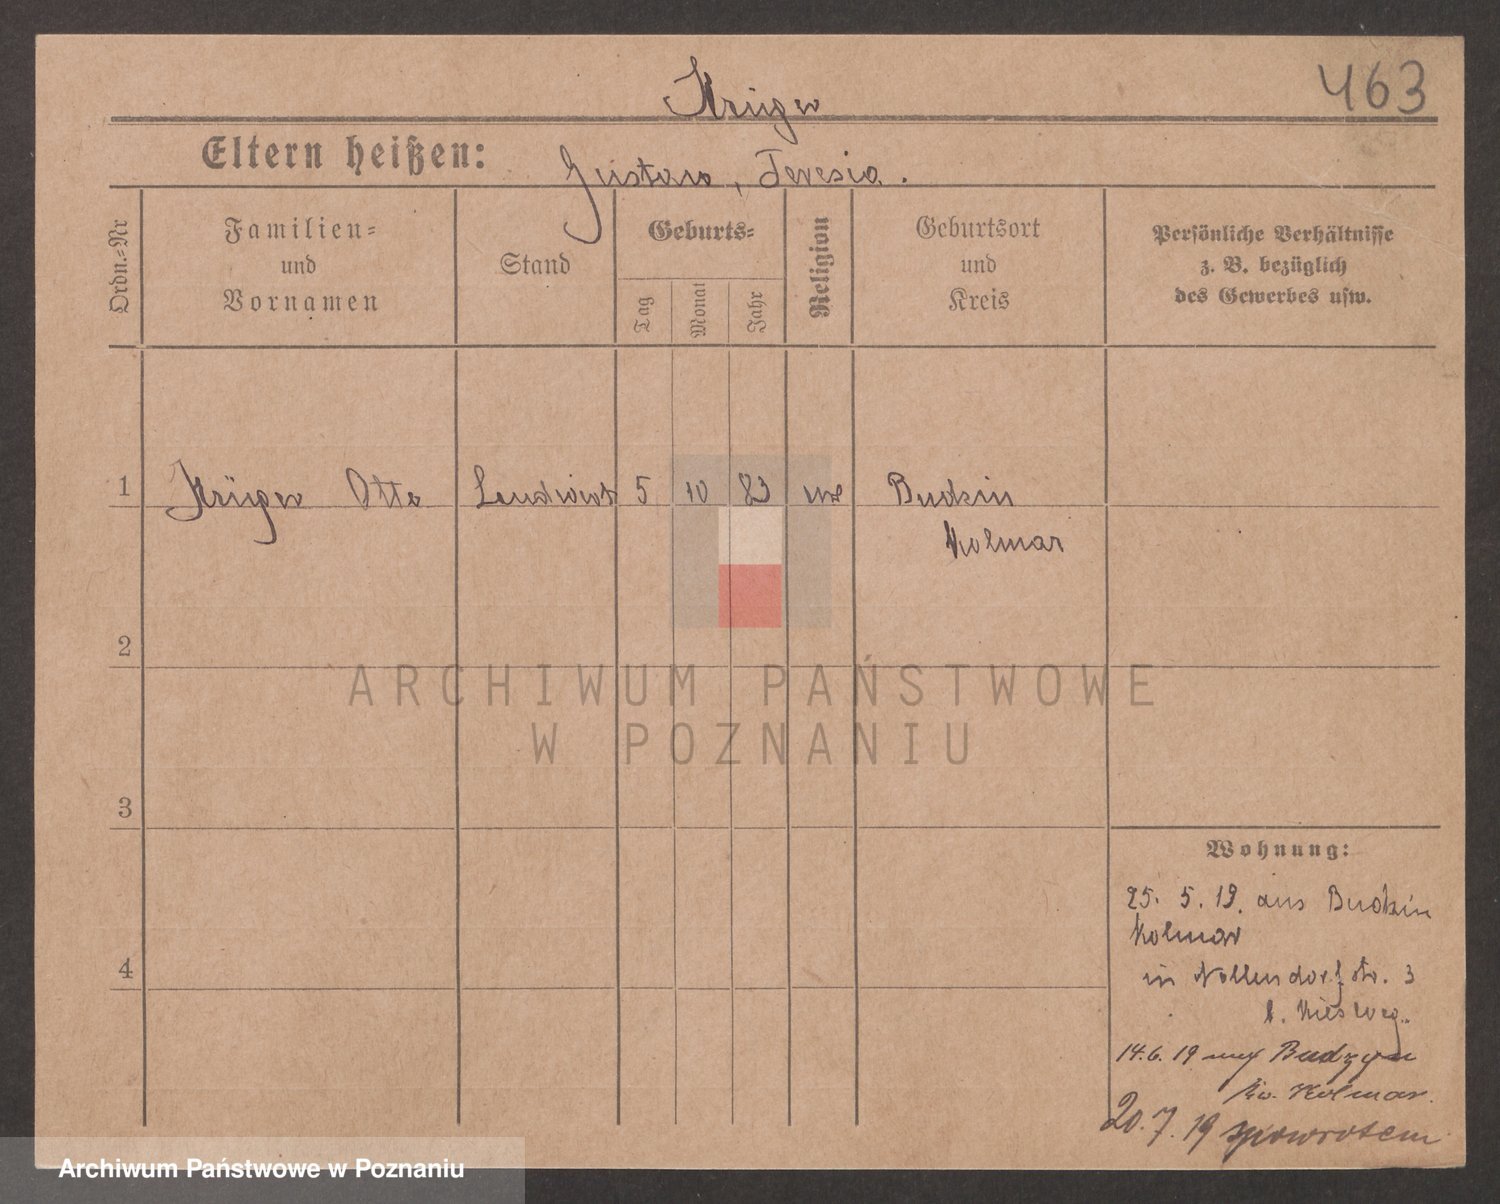 463
Krüger
Eltern heißen: Gustaw, Teresia.
Ordn.-Nr
Familien-
und
Vornamen
Stand
Geburts-
Tag
Monat
Jahr
Religion
Geburtsort
und
Kreis
Persönliche Verhältnisse
z. B. bezüglich
des Gewerbes usw.
1 Krüger Otto Landwirt 5 10 83 Budzin
Kolmar
2
3
4
Wohnung:
25. 5. 19. aus Budzin
Kolmar
in Nollendorfstr. 3
b.
14.6.19 Budzyn
Kolmar.
20.7.19 spowrotem
ARCHIWUM PAŃSTWOWE
W POZNANIU
Archiwum Państwowe w Poznaniu